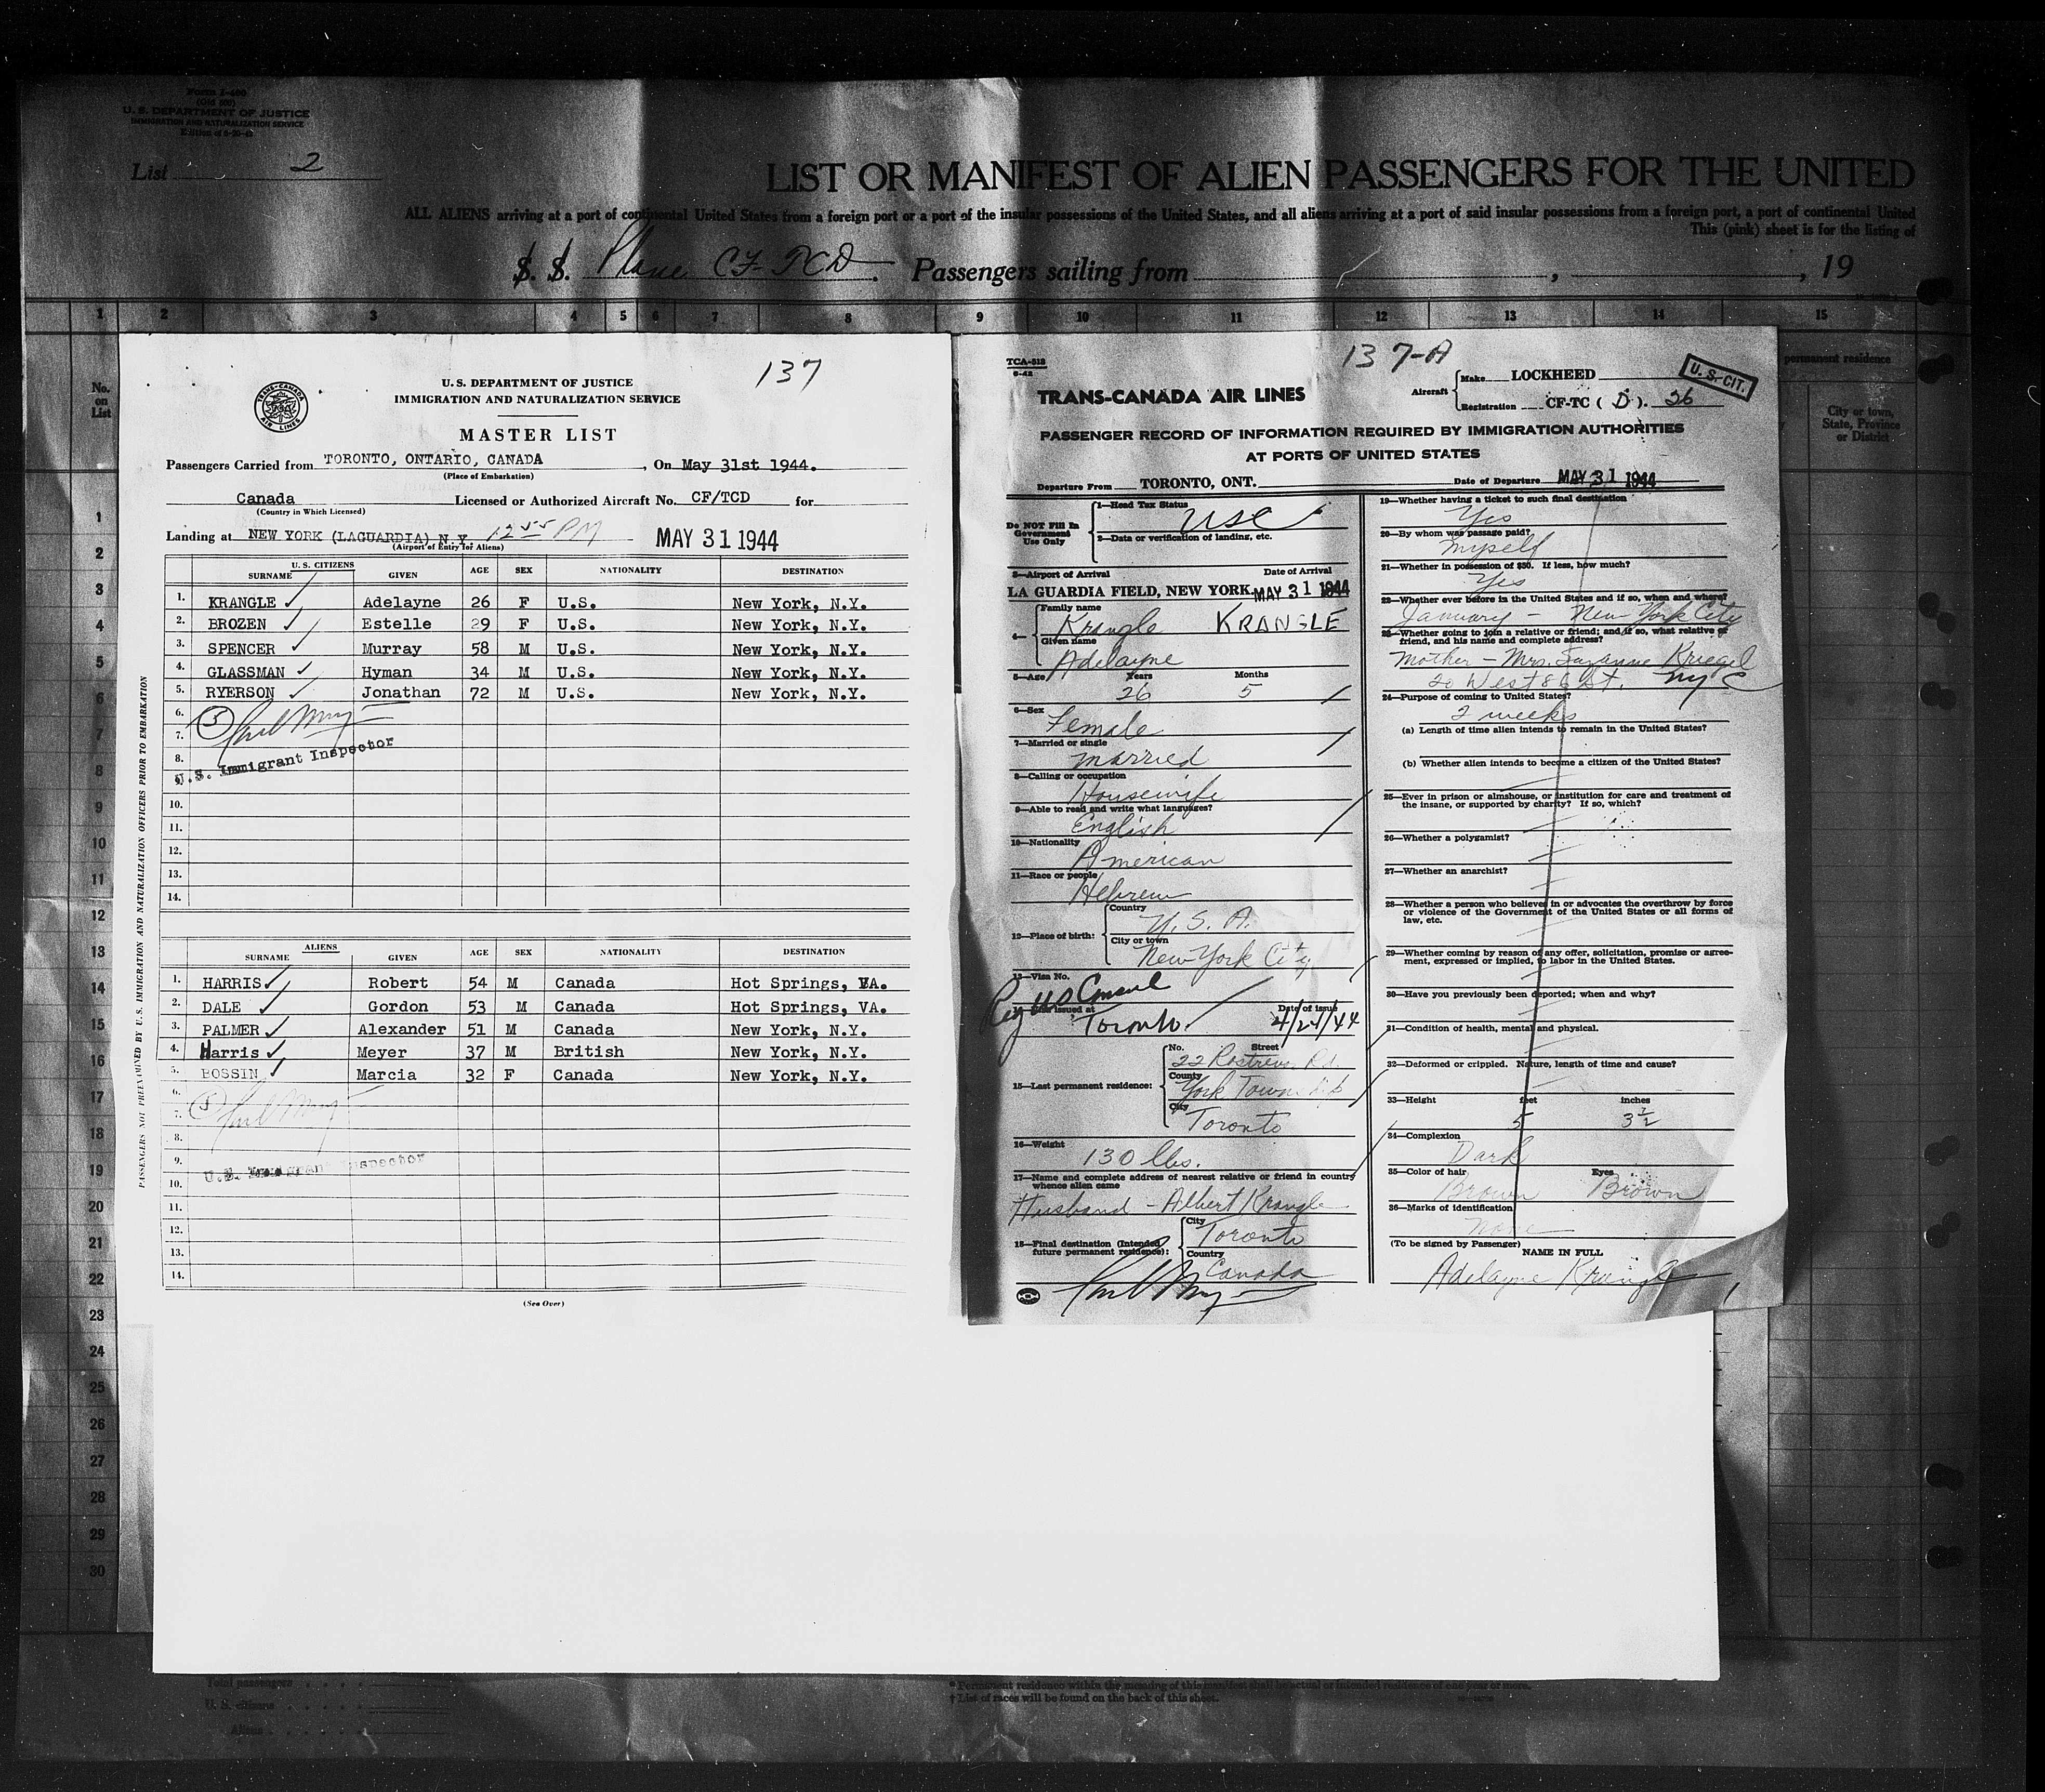 Form I-400
(Old 500)
U. S. DEPARTMENT OF JUSTICE
IMMIGRATION AND NATURALIZATION SERVICE
List 2
LIST OR MANIFEST OF ALIEN PASSENGERS FOR THE UNITED
ALL ALIENS arriving at a port of continental United States from a foreign port or a port of the insular possessions of the United States, and all aliens arriving at a port of said insular possessions from a foreign port, a port of continental United
This (pink) sheet is for the listing of
S. S. Plane CF-TCD. Passengers sailing from , , 19
1 2 3 4 5 6 7 8 9 10 11 12 13 14 15
No. on List
permanent residence
City or town, State, Province or District
1
2
3
4
5
6
7
8
9
10
11
12
13
14
15
16
17
18
19
20
21
22
23
24
25
26
27
28
29
30
137
TRANS-CANADA AIR LINES
U.S. DEPARTMENT OF JUSTICE
IMMIGRATION AND NATURALIZATION SERVICE
MASTER LIST
Passengers Carried from TORONTO, ONTARIO, CANADA, On May 31st 1944.
(Place of Embarkation)
Canada Licensed or Authorized Aircraft No. CF/TCD for
(Country in Which Licensed)
Landing at NEW YORK (LAGUARDIA) N.Y. 12 55 PM MAY 31 1944
(Airport of Entry for Aliens)
PASSENGERS NOT PREEXAMINED BY U.S. IMMIGRATION AND NATURALIZATION OFFICERS PRIOR TO EMBARKATION
U. S. CITIZENS
SURNAME GIVEN AGE SEX NATIONALITY DESTINATION
1. KRANGLE Adelayne 26 F U.S. New York, N.Y.
2. BROZEN Estelle 29 F U.S. New York, N.Y.
3. SPENCER Murray 58 M U.S. New York, N.Y.
4. GLASSMAN Hyman 34 M U.S. New York, N.Y.
5. RYERSON Jonathan 72 M U.S. New York, N.Y.
6. 5
7.
8.
U.S. Immigrant Inspector
10.
11.
12.
13.
14.
ALIENS
SURNAME GIVEN AGE SEX NATIONALITY DESTINATION
1. HARRIS Robert 54 M Canada Hot Springs, VA.
2. DALE Gordon 53 M Canada Hot Springs, VA.
3. PALMER Alexander 51 M Canada New York, N.Y.
4. Harris Meyer 37 M British New York, N.Y.
5. BOSSIN Marcia 32 F Canada New York, N.Y.
6.
7. 5
8.
9.
U.S. Immigrant Inspector
10.
11.
12.
13.
14.
(See Over)
TCA-518
6-42
137-A
U.S. CIT.
TRANS-CANADA AIR LINES
Aircraft Make LOCKHEED
Registration CF-TC ( D ). 26
PASSENGER RECORD OF INFORMATION REQUIRED BY IMMIGRATION AUTHORITIES
AT PORTS OF UNITED STATES
Departure From TORONTO, ONT. Date of Departure MAY 31 1944
Do NOT Fill In Government Use Only
1—Head Tax Status USC
2—Data or verification of landing, etc.
3—Airport of Arrival Date of Arrival
LA GUARDIA FIELD, NEW YORK MAY 31 1944
4— Family name
Krangle KRANGLE
Given name
Adelayne
5—Age Years Months
26 5
6—Sex
Female
7—Married or single
married
8—Calling or occupation
Housewife
9—Able to read and write what languages?
English
10—Nationality
American
11—Race or people
Hebrew
12—Place of birth: Country
U. S. A.
City or town
New York City
13—Visa No.
US Consul
issued at Date of issue
Toronto 4/24/44
15—Last permanent residence: No. Street
22 Rostrevor Rd.
County
York Township
City
Toronto
16—Weight
130 lbs.
17—Name and complete address of nearest relative or friend in country whence alien came
Husband - Albert Krangle
18—Final destination (Intended future permanent residence): City
Toronto
Country
Canada
19—Whether having a ticket to such final destination
Yes
20—By whom was passage paid?
myself
21—Whether in possession of $50. If less, how much?
Yes
22—Whether ever before in the United States and if so, when and where?
January - New York City
23—Whether going to join a relative or friend; and if so, what relative or
friend, and his name and complete address?
Mother - Mrs. Suzanne Kriegel
20 West 86 St. NYC
24—Purpose of coming to United States?
2 weeks
(a) Length of time alien intends to remain in the United States?
(b) Whether alien intends to become a citizen of the United States?
25—Ever in prison or almshouse, or institution for care and treatment of
the insane, or supported by charity? If so, which?
26—Whether a polygamist?
27—Whether an anarchist?
28—Whether a person who believes in or advocates the overthrow by force
or violence of the Government of the United States or all forms of
law, etc.
29—Whether coming by reason of any offer, solicitation, promise or agree-
ment, expressed or implied, to labor in the United States.
30—Have you previously been deported; when and why?
31—Condition of health, mental and physical.
32—Deformed or crippled. Nature, length of time and cause?
33—Height feet inches
5 3½
34—Complexion
Dark
35—Color of hair Eyes
Brown Brown
36—Marks of identification
none
(To be signed by Passenger)
NAME IN FULL
Adelayne Krangle
Total passengers
U. S. citizens
Aliens
* Permanent residence within the meaning of this manifest shall be actual or intended residence of one year or more.
† List of races will be found on the back of this sheet.